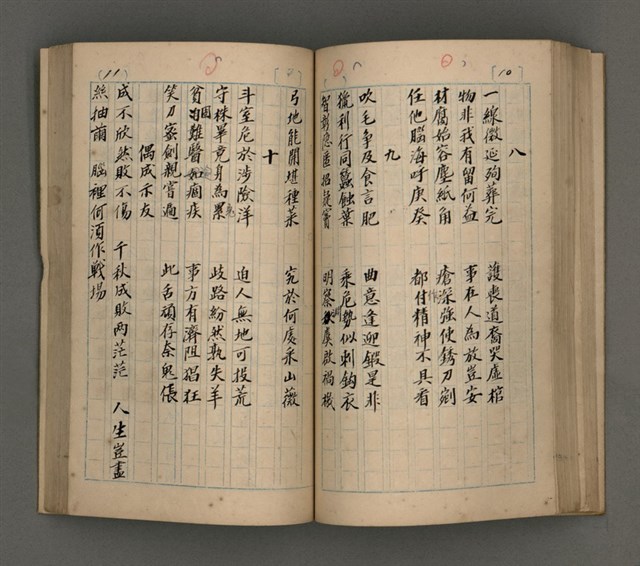 10
八
一線微延殉葬完 護喪道裔哭虛棺
物非我有留何益 事在人為放豈安
材腐始容塵紙角 瘡深強使銹刀剜
任他腦海呼庚癸 都付精神不具看
九
吹毛爭及食言肥 曲意逢迎鍛是非
獵利行同蠶蝕葉 乘危勢似刺鈎衣
明察 禍機
弓地能開堪種菜 窮於何處采山薇
十
斗室危於涉險洋 迫人無地可投荒
守株畢竟身為累 歧路紛然孰失羊
貧困難醫如痼疾 事方有濟阻猖狂
笑刀家劍親嘗過 此舌頑存奈鬼倀
偶成示友
成不欣然敗不傷 千秋成敗兩茫茫 人生豈盡
絲抽繭 腦裡何須作戰場
11